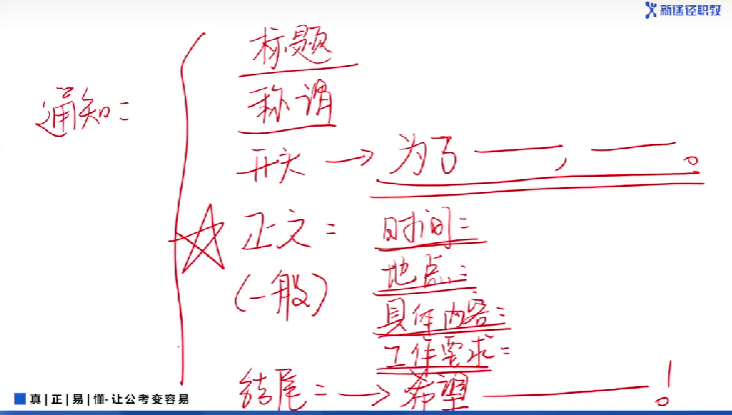 新途径职教
标题
称谓
通知：
开头 → 为了 ——，——。
正文： 时间：
(一般) 地点：
具体内容：
工作要求：
结尾： → 希望 ——！
真|正|易|懂-让公考变容易